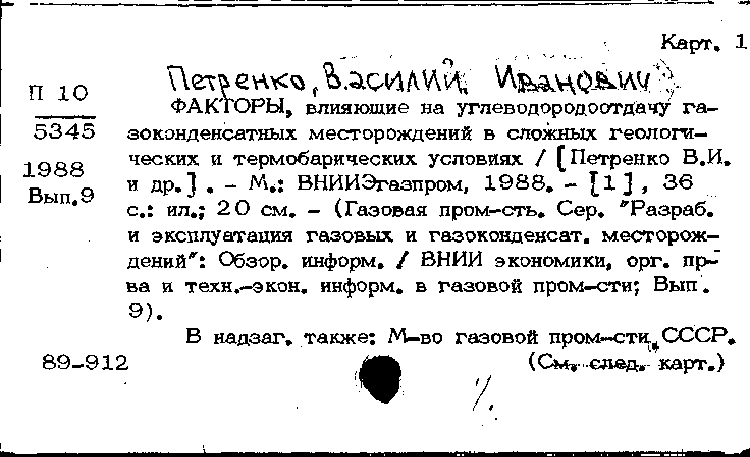 Карт. 1
Петренко, Василий Иванович
П 10
5345
1988
Вып.9
ФАКТОРЫ, влияющие на углеводородоотдачу га-
зоконденсатных месторождений в сложных геологи-
ческих и термобарических условиях / [Петренко В.И.
и др.] . - М.: ВНИИЭгазпром, 1988. - [1] , 36
с.: ил.; 20 см. - (Газовая пром-сть. Сер. "Разраб.
и эксплуатация газовых и газоконденсат. месторож-
дений": Обзор. информ. / ВНИИ экономики, орг. пр-
ва и техн.-экон. информ. в газовой пром-сти; Вып.
9).
В надзаг. также: М-во газовой пром-сти СССР.
89-912
(См. след. карт.)